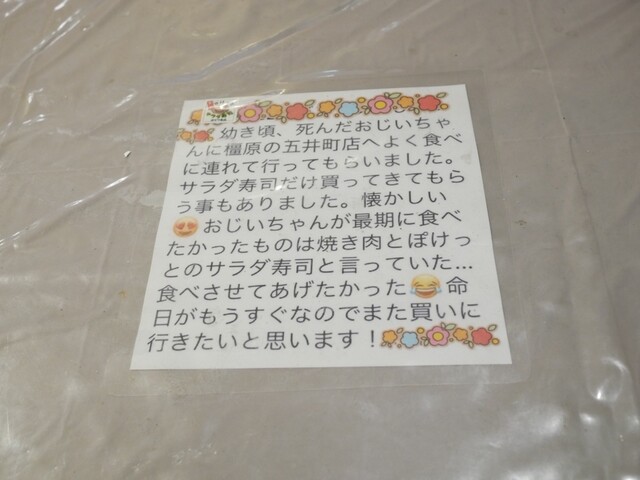 幼き頃、死んだおじいちゃ
んに橿原の五井町店へよく食べ
に連れて行ってもらいました。
サラダ寿司だけ買ってきてもら
う事もありました。懐かしい
😍おじいちゃんが最期に食べ
たかったものは焼き肉とぽけっ
とのサラダ寿司と言っていた…
食べさせてあげたかった😂命
日がもうすぐなのでまた買いに
行きたいと思います！